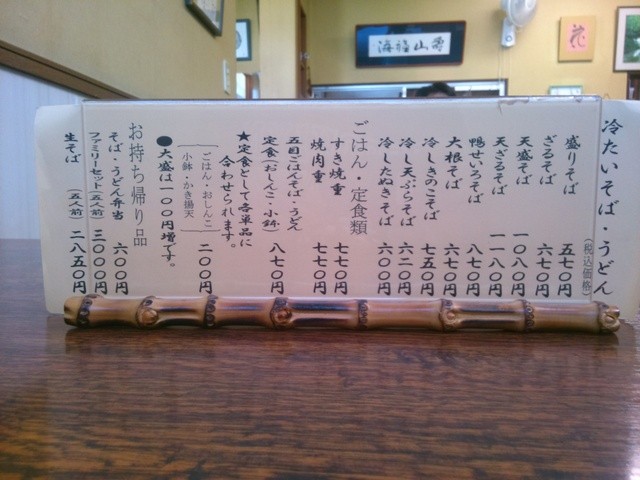 冷たいそば・うどん
(税込価格)
盛りそば 五七〇円
ざるそば 六七〇円
天盛そば 一〇八〇円
天ざるそば 一一八〇円
鴨せいろそば 八七〇円
大根そば 六七〇円
冷しきのこそば 七五〇円
冷し天ぷらそば 六二〇円
冷したぬきそば 六〇〇円
ごはん・定食類
すき焼重 七七〇円
焼肉重 七七〇円
五目ごはんそば・うどん
定食(おしんこ・小鉢) 八七〇円
★定食として各単品に
合わせられます。
ごはん・おしんこ
小鉢・かき揚天 二〇〇円
●大盛は一〇〇円増です。
お持ち帰り品
そば・うどん弁当 六〇〇円
ファミリーセット(五人前) 三〇〇〇円
生そば (五人前) 二八五〇円